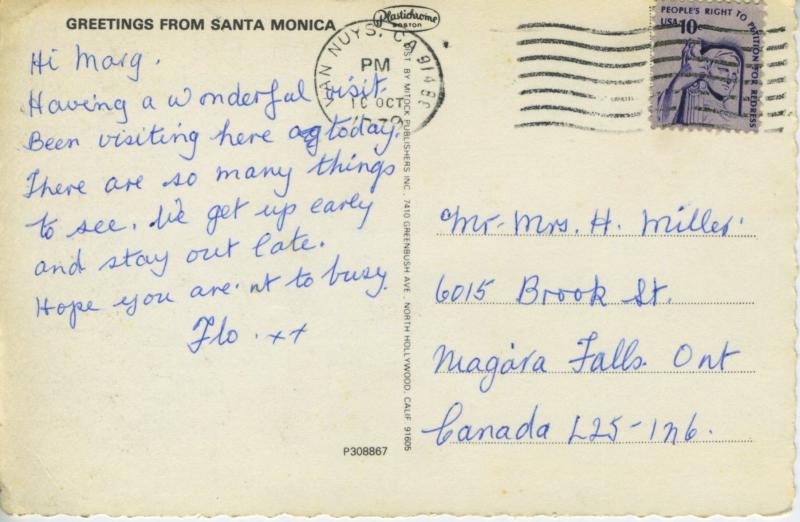 GREETINGS FROM SANTA MONICA
Hi Marg.
Having a wonderful visit.
Been visiting here today.
There are so many things
to see. We get up early
and stay out late.
Hope you are nt to busy.
Flo. xx
P308867
Plastichrome
BOSTON
DIST. BY MITOCK PUBLISHERS INC. 7410 GREENBUSH AVE., NORTH HOLLYWOOD, CALIF 91605
VAN NUYS, CA
PM
10 OCT
PEOPLE'S RIGHT TO PETITION FOR REDRESS
USA 10c
Mr. Mrs. H. Miller
6015 Brook St.
Niagara Falls. Ont
Canada L2S-1N6.